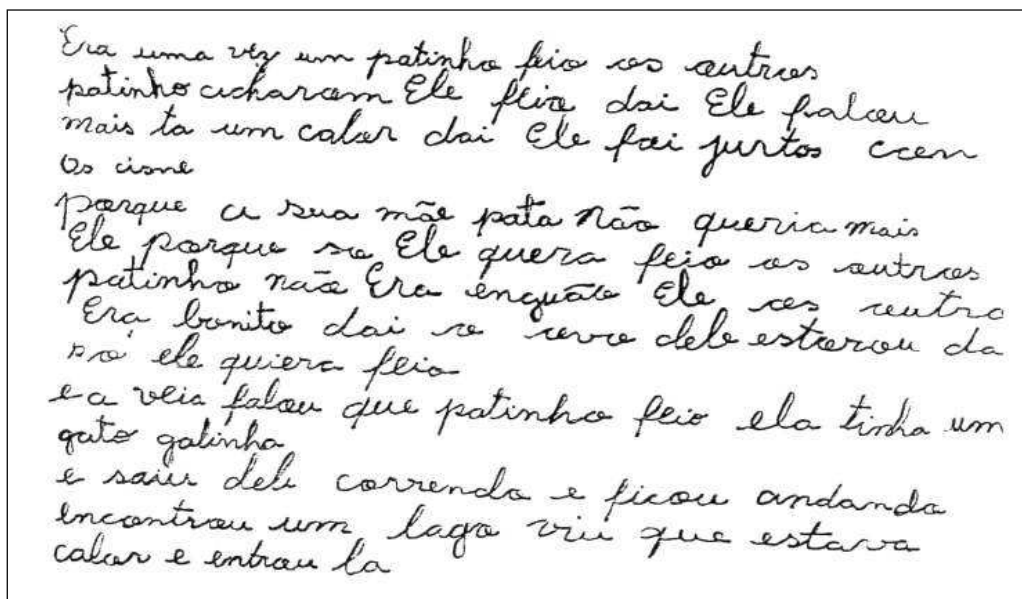 Era uma vez um patinho feio os outros
patinho acharam Ele feio dai Ele falou
mais ta um calor dai Ele foi juntos com
Os cisne
porque a sua mãe pata não queria mais
Ele porque so Ele quera feio os outros
patinho não Era enquãto Ele os outro
Era bonito dai o ovo dele estorou da
so ele quiera feio
e a veia falou que patinho feio ela tinha um
gato galinha
e saiu dele correndo e ficou andando
encontrou um lago viu que estava
calor e entrou la